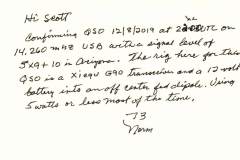 Hi Scott
Confirming QSO 12/8/2019 at UTC on
14,260 mHz USB with a signal level of
5x9+10 in Arizona. The rig here for this
QSO is a Xiegu G90 transceiver and a 12 volt
battery into an off center fed dipole. Using
5 watts or less most of the time.
73
Norm